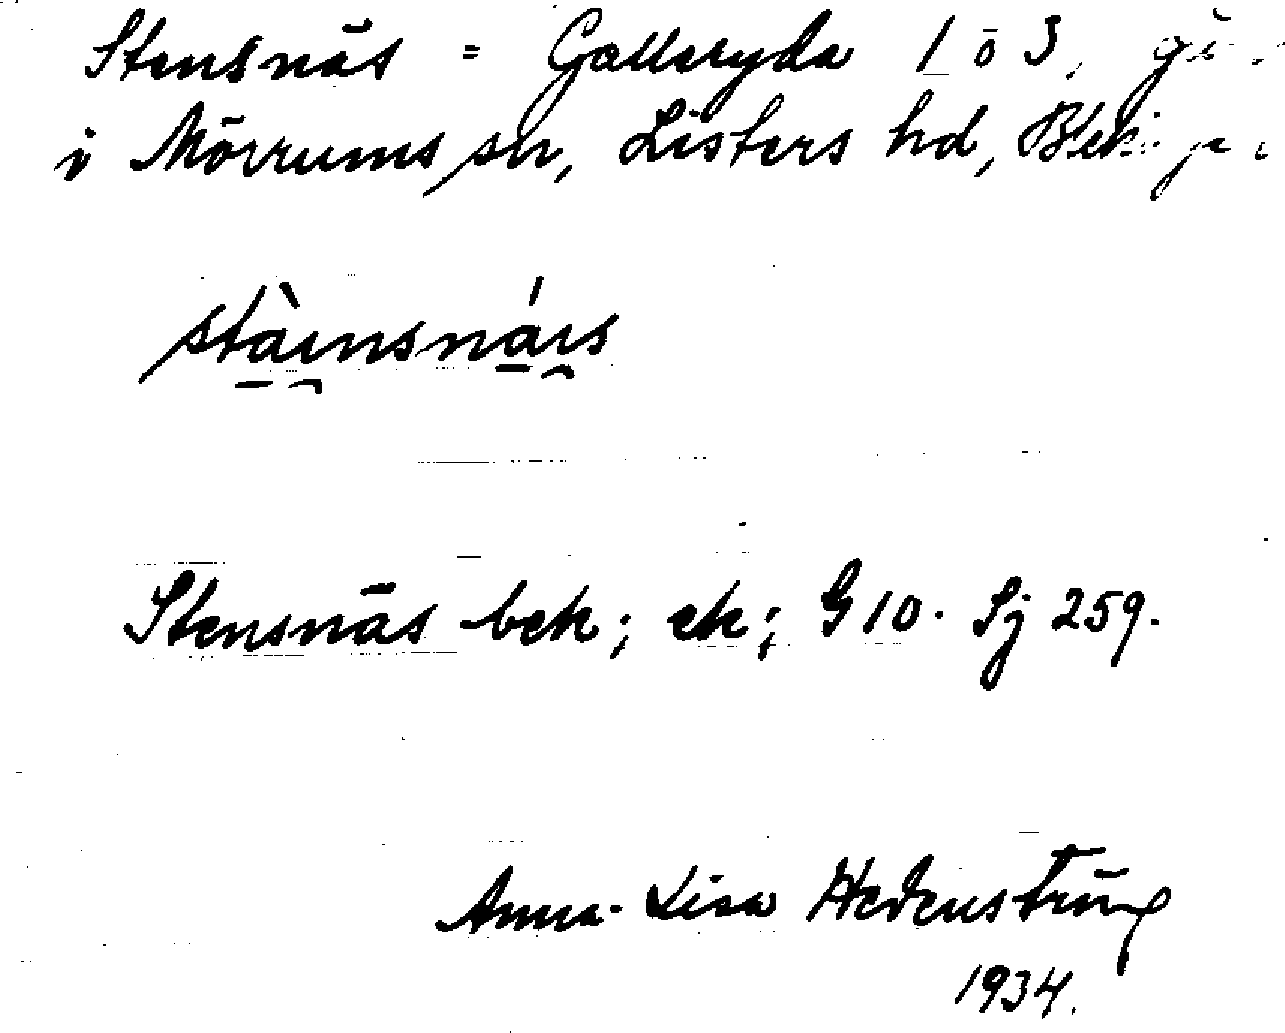 Stensnäs = Galleryda 1 o 3,
i Mörrums sn, Listers hd,
stàinsnáis
Stensnäs bek; ek; G 10. Sj 259.
Anna-Lisa
1934.